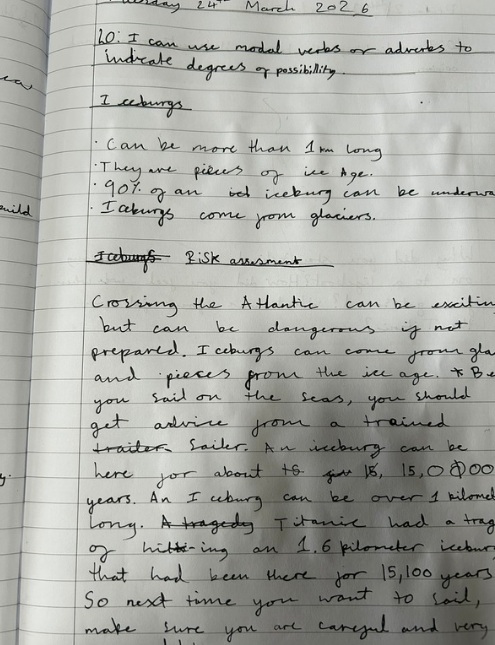 24th March 2026
LO: I can use modal verbs or adverbs to
indicate degrees of possibillity.
Iceburgs
· Can be more than 1km long
· They are pieces of ice Age.
· 90% of an iceburg can be underwa
· Iceburgs come from glaciers.
Iceburgs Risk assesment
Crossing the Atlantic can be excitin
but can be dangerous if not
prepared. Iceburgs can come from gla
and pieses from the ice age. * Be
you sail on the seas, you should
get advice from a trained
trailer Sailer. An iceburg can be
here for about 15, 15,000
years. An Iceburg can be over 1 kilomet
long. A tragedy Titanic had a trag
of hitt-ing an 1.6 kilometer iceburg
that had been there for 15,100 years
So next time you want to sail,
make sure you are careful and very